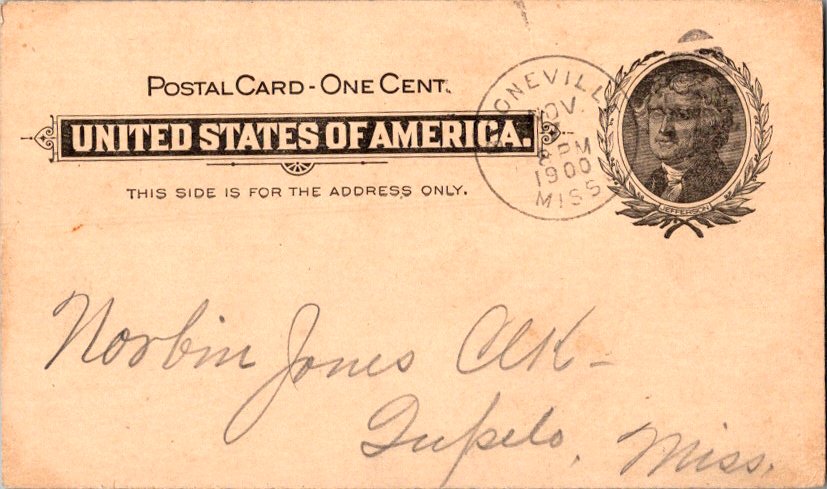 POSTAL CARD - ONE CENT.
UNITED STATES OF AMERICA.
THIS SIDE IS FOR THE ADDRESS ONLY.
ONEVILL
NOV.
PM
1900
MISS
JEFFERSON
Norbin Jones Clk -
Tupelo, Miss.